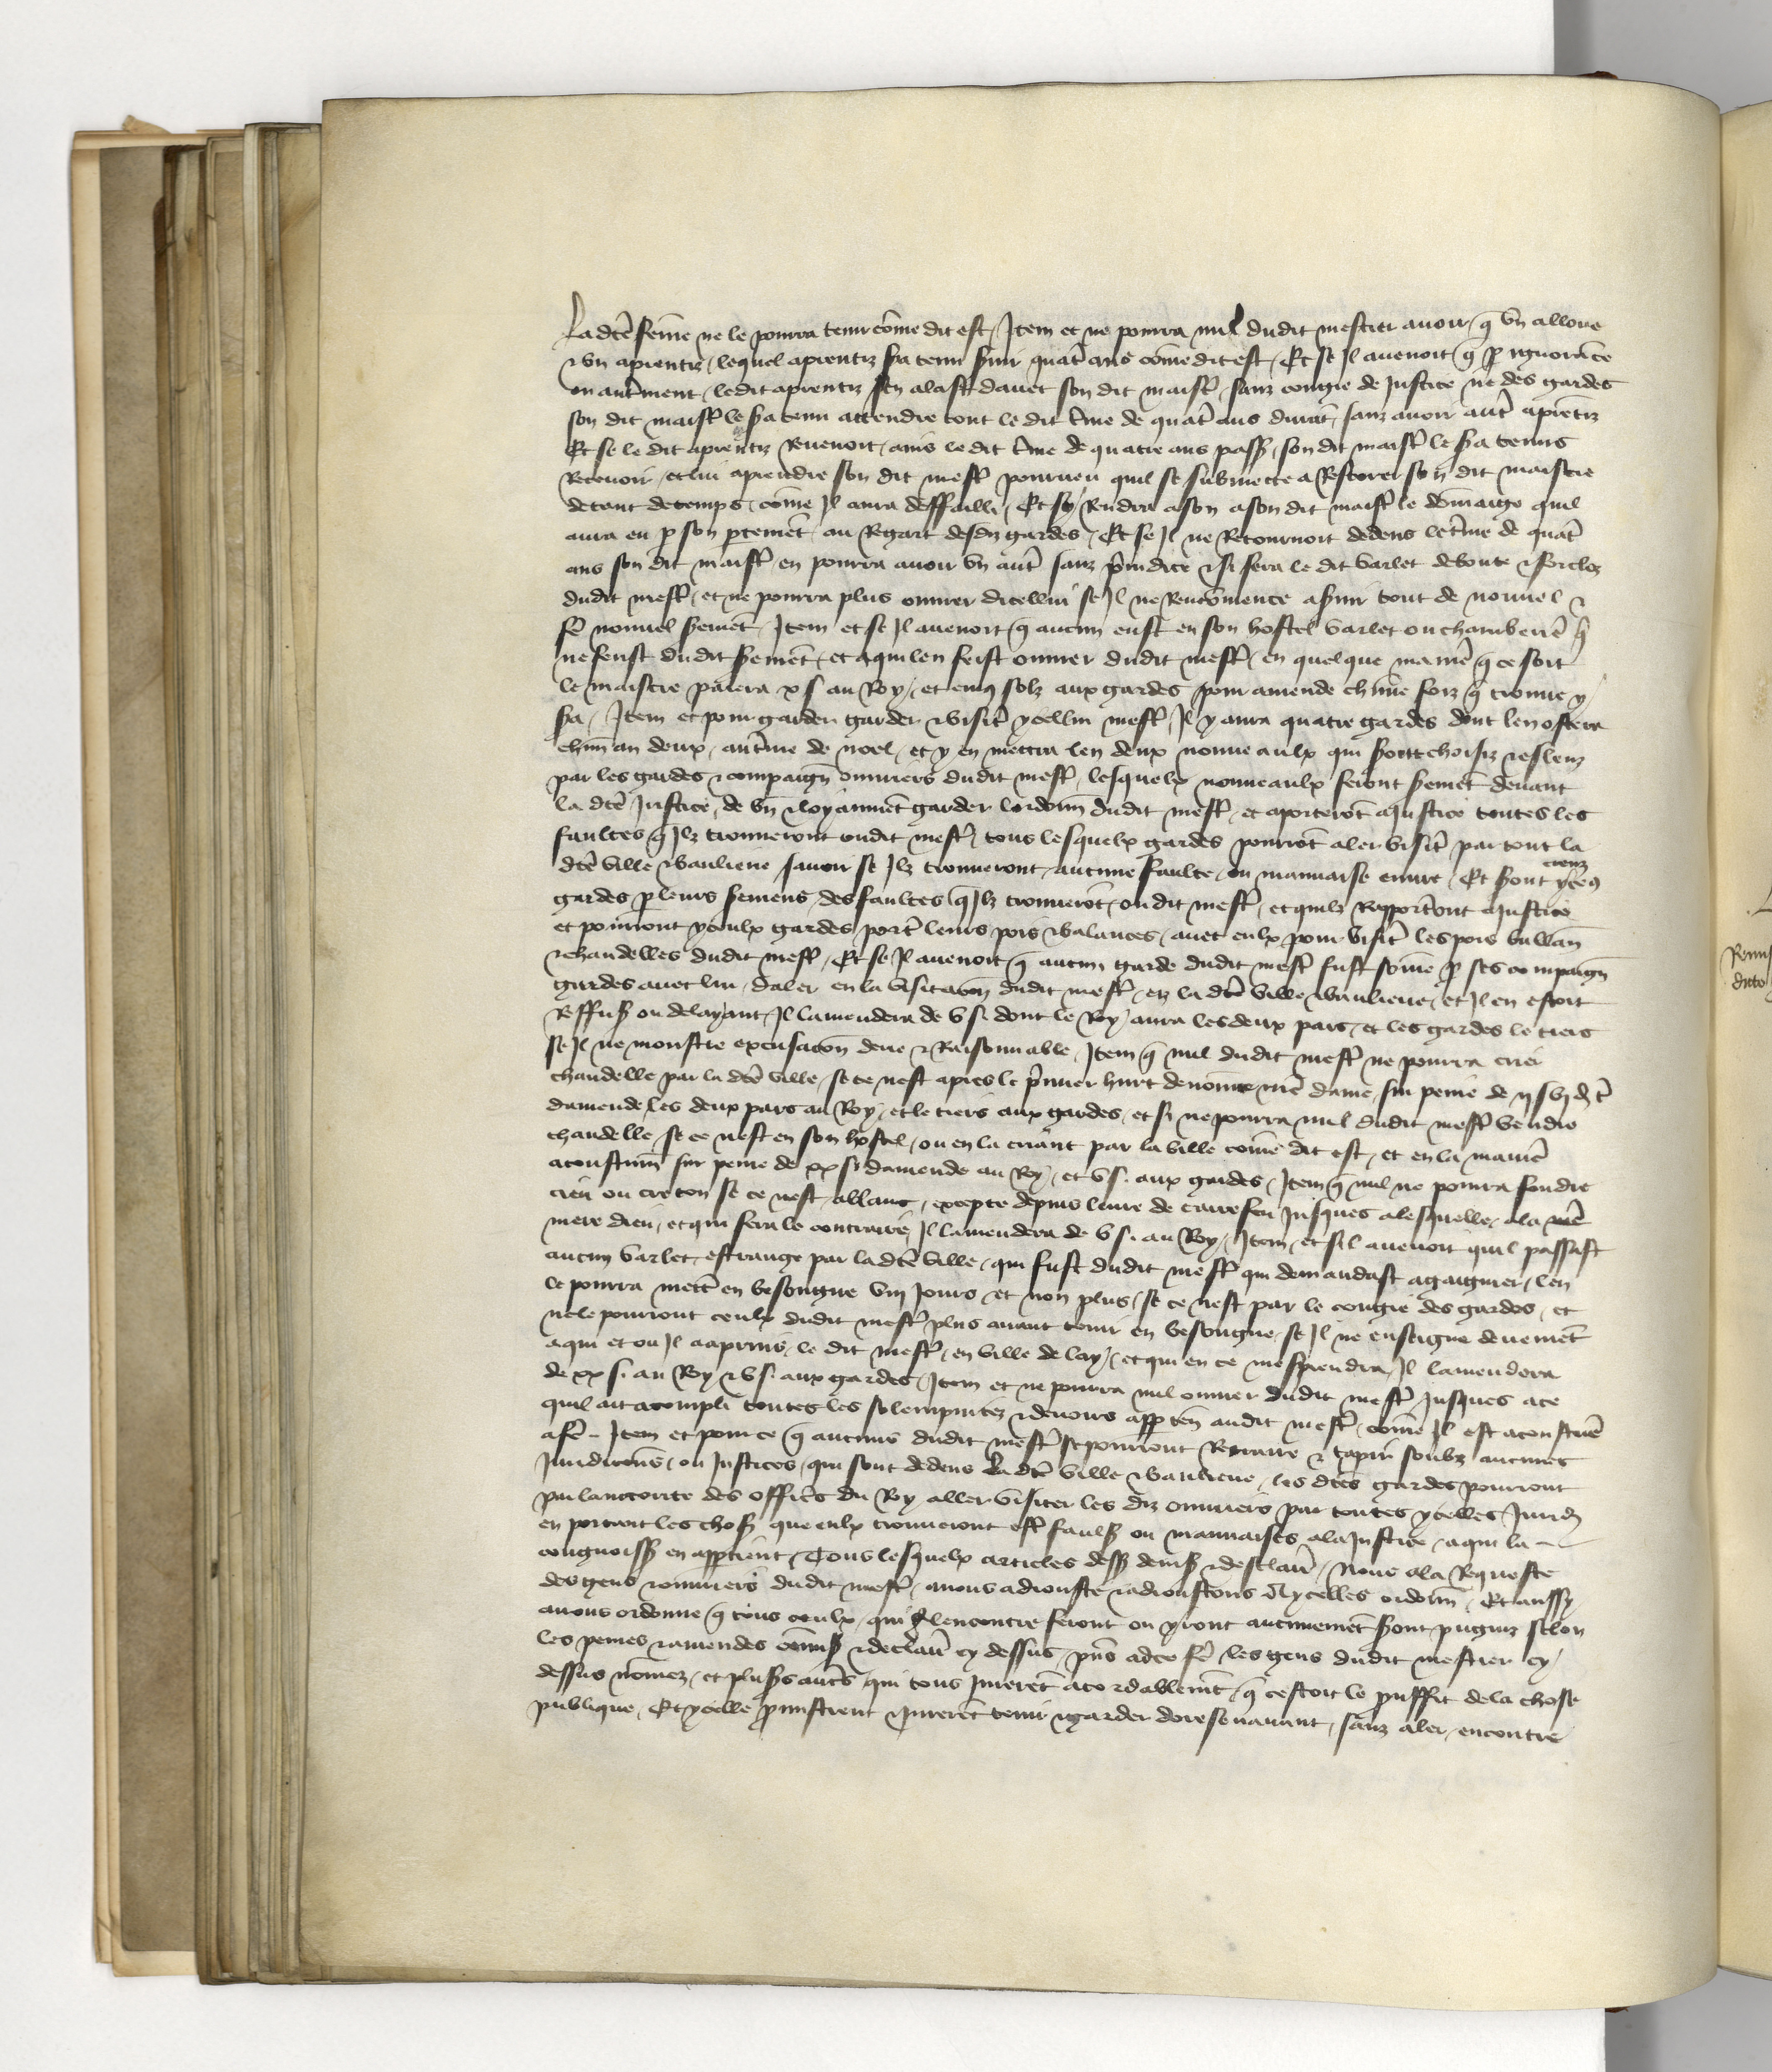 La dcē feme ne le pourra tenir cōme dit est / Item et ne pourra nul dudit mestier avoir q̄ vn alloue
& vn aprentiz / lequel aprentiz sa tenu suir quat̄ ans cōme dit est / Et se Il auenoit q̄ p ignorāce
ou aut̄ment / ledit aprentiz sen alast dauec son dit maist̄ / sanz congie de Justice ne des gardes
son dit maist̄ le sa tenu attendre tout le dit t̄me de quat̄ ans durāt / sanz auoir aut̄ aprētiz
Et se le dit aprentiz Reuenoit / ains le dit t̄me de quatre ans pass / son dit maist̄ le sa tenus
Receuoir / et lui aprendre son dit mest̄ pourueu quil se submecte a Restorer son dit maistre
de tant de temps / cōme Il aura deffailli / Et sy Rendra a son a son dit maist̄ le dōmaige quil
aura eu p son ptemēt au Regart desdn gardes / Et se Il ne Retournoit dedens le t̄me de quat̄
ans son dit maist̄ en pourra auoir vn aut̄ sanz p̄iudice & si sera le dit varlet deboute & forcloz
dudit mest̄ / et ne pourra plus ouurer dicellui se Il ne Rencōmence a suir tout de nouuel &
fē nouuel semēt / Item et se Il auenoit q̄ aucun eust en son hostel varlet ou chamberiē q̄
ne feust dudit semēt / et a quil en feist ouurer dudit mest̄ / en quelque maniē q̄ ce soit
le maistre paiera x s au Roy / et cinq solz aux gardes pour amende chūne foiz q̄ trouue y
sa / Item et pour garder garder & visit̄ ycellui mest̄ / Il y aura quatre gardes dont len ostera
chūn an deux / au t̄me de noel / et y en mettra len deux nouueaulx qui sont choisiz & esleuz
par les gardes & compaign̄ ouuriers dudit mest̄ / lesquelx nouueaulx feront semēt deuant
la dcē Justice / de bn̄ & loyaumēt garder lordonn̄ dudit mest̄ / et aporterōt a Justice toutes les
faultes q̄ Ilz trouueront oudit mest̄ / tous lesquelx gardes pourrōt aler visit̄ par tout la
dcē ville & banlieue sauoir se Ilz trouueront aucune faulte / ou mauuaise euure / Et sont creuz yceu9
gardes p leurs semens / des faultes q̄ Ilz trouuerōt / oudit mest̄ / et quilz Rapport̄ont a Justice
et pourront yceulx gardes port̄ leurs pois & balances / auec eulx pour visit̄ les pois ballan̄
& chandelles dudit mest̄ / Et se Il auenoit q̄ aucun garde dudit mest̄ fust sōme p ses compaign̄
gardes auec lui / daler en la visitacōn dudit mest̄ / en la dcē ville & banlieue / et Il en estoit
Reffuss ou delayant / Il lamendera de v s. dont le Roy aura les deux pars / et les gardes le tiers
se Il ne monstre excusacōn deue & Raisonnable / Item q̄ nul dudit mest̄ ne pourra crier
chandelle par la dcē ville / se ce nest apres le p̄mier hurt de nr̄e dame / sur peine de ij s vj d t̄
damende les deux pars au Roy / et le tiers aux gardes / et si ne pourra nul dudit mest̄ vendre
chandelle / se ce nest en son hostel / ou en la criant par la ville cōme dit est / et en la maniē
acoustum̄ sur peine de xx s. damende au Roy / et v s. aux gardes / Item q̄ nul ne pourra fondre
cieu ou creton se ce nest a blanc / excepte depuis leure de caurefeu Jusques a lesquelle / a la
mere dieu / et qui fera le contraire / Il lamendera de v s. au Roy / Item / et sil auenoit quil passast
aucun varlet estrange par la dcē ville / qui fust dudit mest̄ qui demandast a gaigner / len
le pourra mett̄ en besongne viij Jours / et non plus / se ce nest par le congie des gardes / et
ne le pourront ceulx dudit mest̄ plus auant tenir en besongne / se Il ne enseigne deuemēt
a qui et ou Il a aprins / le dit mest̄ / en ville de loy / et qui en ce mesprendra / Il lamendera
de xx s. au Roy & v s. aux gardes / Item et ne pourra nul ouurer dudit mest̄ Jusques a ce
quil ait acompli toutes les solempnitez & deuoirs apptēn audit mest̄ / cōme Il est acoustumē
a fē – Item et pour ce q̄ aucuns dudit mest̄ se pourroient Retraire & tapir soubz aucunes
Juridicōns / ou Justices / qui sont dedens la dcē ville & banlieue / les dcēs gardes pourront
par lauctorite des officēs du Roy aller visiter les diz ouuriers par toutes ycelles Jurid
en portant les chos̄ que eulx trouueront est̄ faulss ou mauuaises / a la Justice / a qui la –
congnoiss en apptient / Tous lesquelx articles dess deuiss & desclair̄ / Nous a la Requeste
des gens & ouuriers dudit mest̄ / auons adiouste & adioustons a ycelles ordonn̄ / Et aussy
auons ordonne q̄ tous ceulx qui a lencontre feront ou yront aucunemēt sont pugniz selon
les peines & amendes cōniss & declair̄ cy dessus / pn̄s ad ce fē les gens dudit mestier cy
dessus nōmez / et pluss aut̄s qui tous Jurerēt acordablemēt q̄ cestoit le p̄uffit de la chose
publique / Et ycelle p̄mistrent & Jurerēt tenir & garder doresenauant / sanz aler / encontre